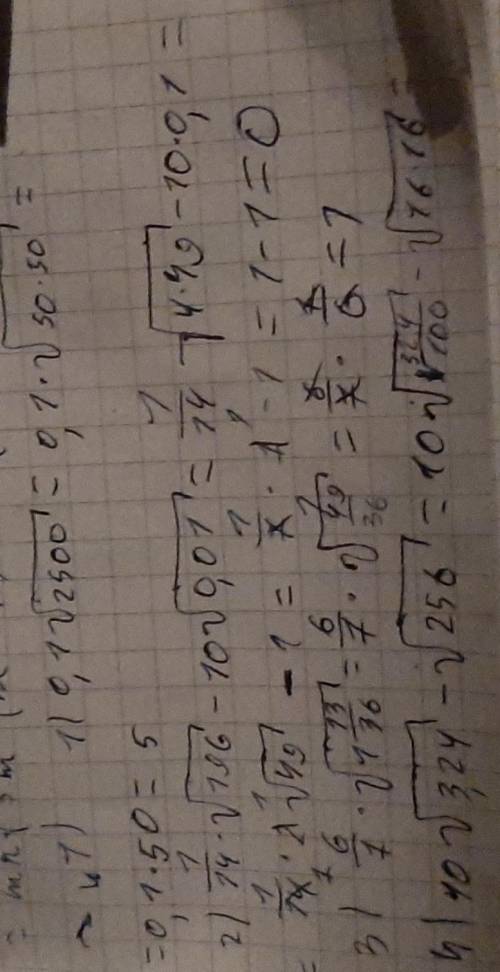 1) 0,1√2500 = 0,1·√50·50 =
= 0,1·50 = 5
2) 1/14·√196 - 10√0,01 = 1/14 √4·49 - 10·0,1 =
= 1/14·2√49 - 1 = 1/7·7 - 1 = 1 - 1 = 0
3) 6/7·√1 13/36 = 6/7·√49/36 = 6/7·7/6 = 1
4) 10√3,24 - √256 = 10√324/100 - √16·16 =